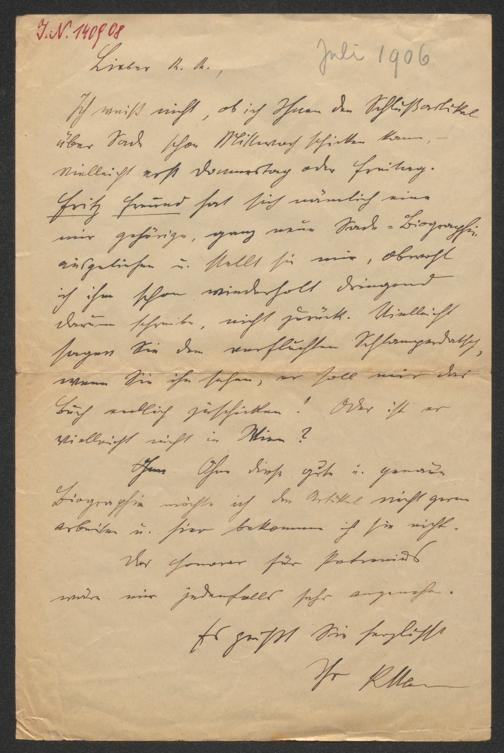 J.N. 140908
Juli 1906
Lieber K. K.,
Ich weiß nicht, ob ich Ihnen den Schlußartikel
über Sade schon Mittwoch schicken kann, –
vielleicht erst Donnerstag oder Freitag.
Fritz Freund hat sich nämlich eine
mir gehörige, ganz neue Sade-Biographie
ausgeliehen u. stellt sie mir, obwohl
ich ihm schon wiederholt dringend
darum schrieb, nicht zurück. Vielleicht
sagen Sie dem verfluchten Schlamperdatsch,
wenn Sie ihn sehen, er soll mir das
Buch endlich zuschicken! Oder ist er
vielleicht nicht in Wien?
Ohne diese gute u. genaue
Biographie möchte ich den Artikel nicht gern
arbeiten u. hier bekomme ich sie nicht.
Das Honorar für
wäre mir jedenfalls sehr angenehm.
Es grüßt Sie herzlichst
Ihr